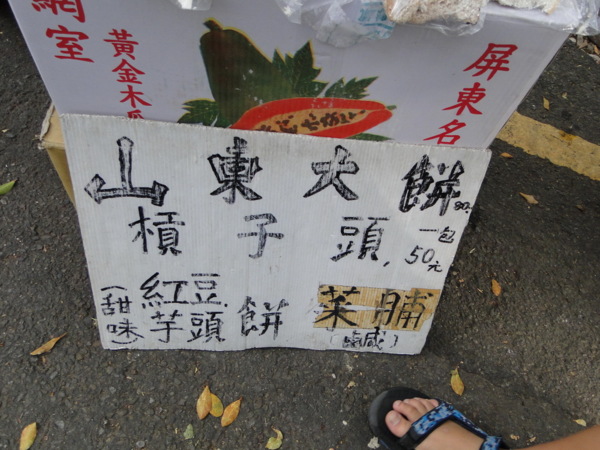 網室
黃金木瓜
屏東名
山東大餅 80.
槓子頭. 一包50元
(甜味) 紅豆. 芋頭 餅
菜脯
(鹹)